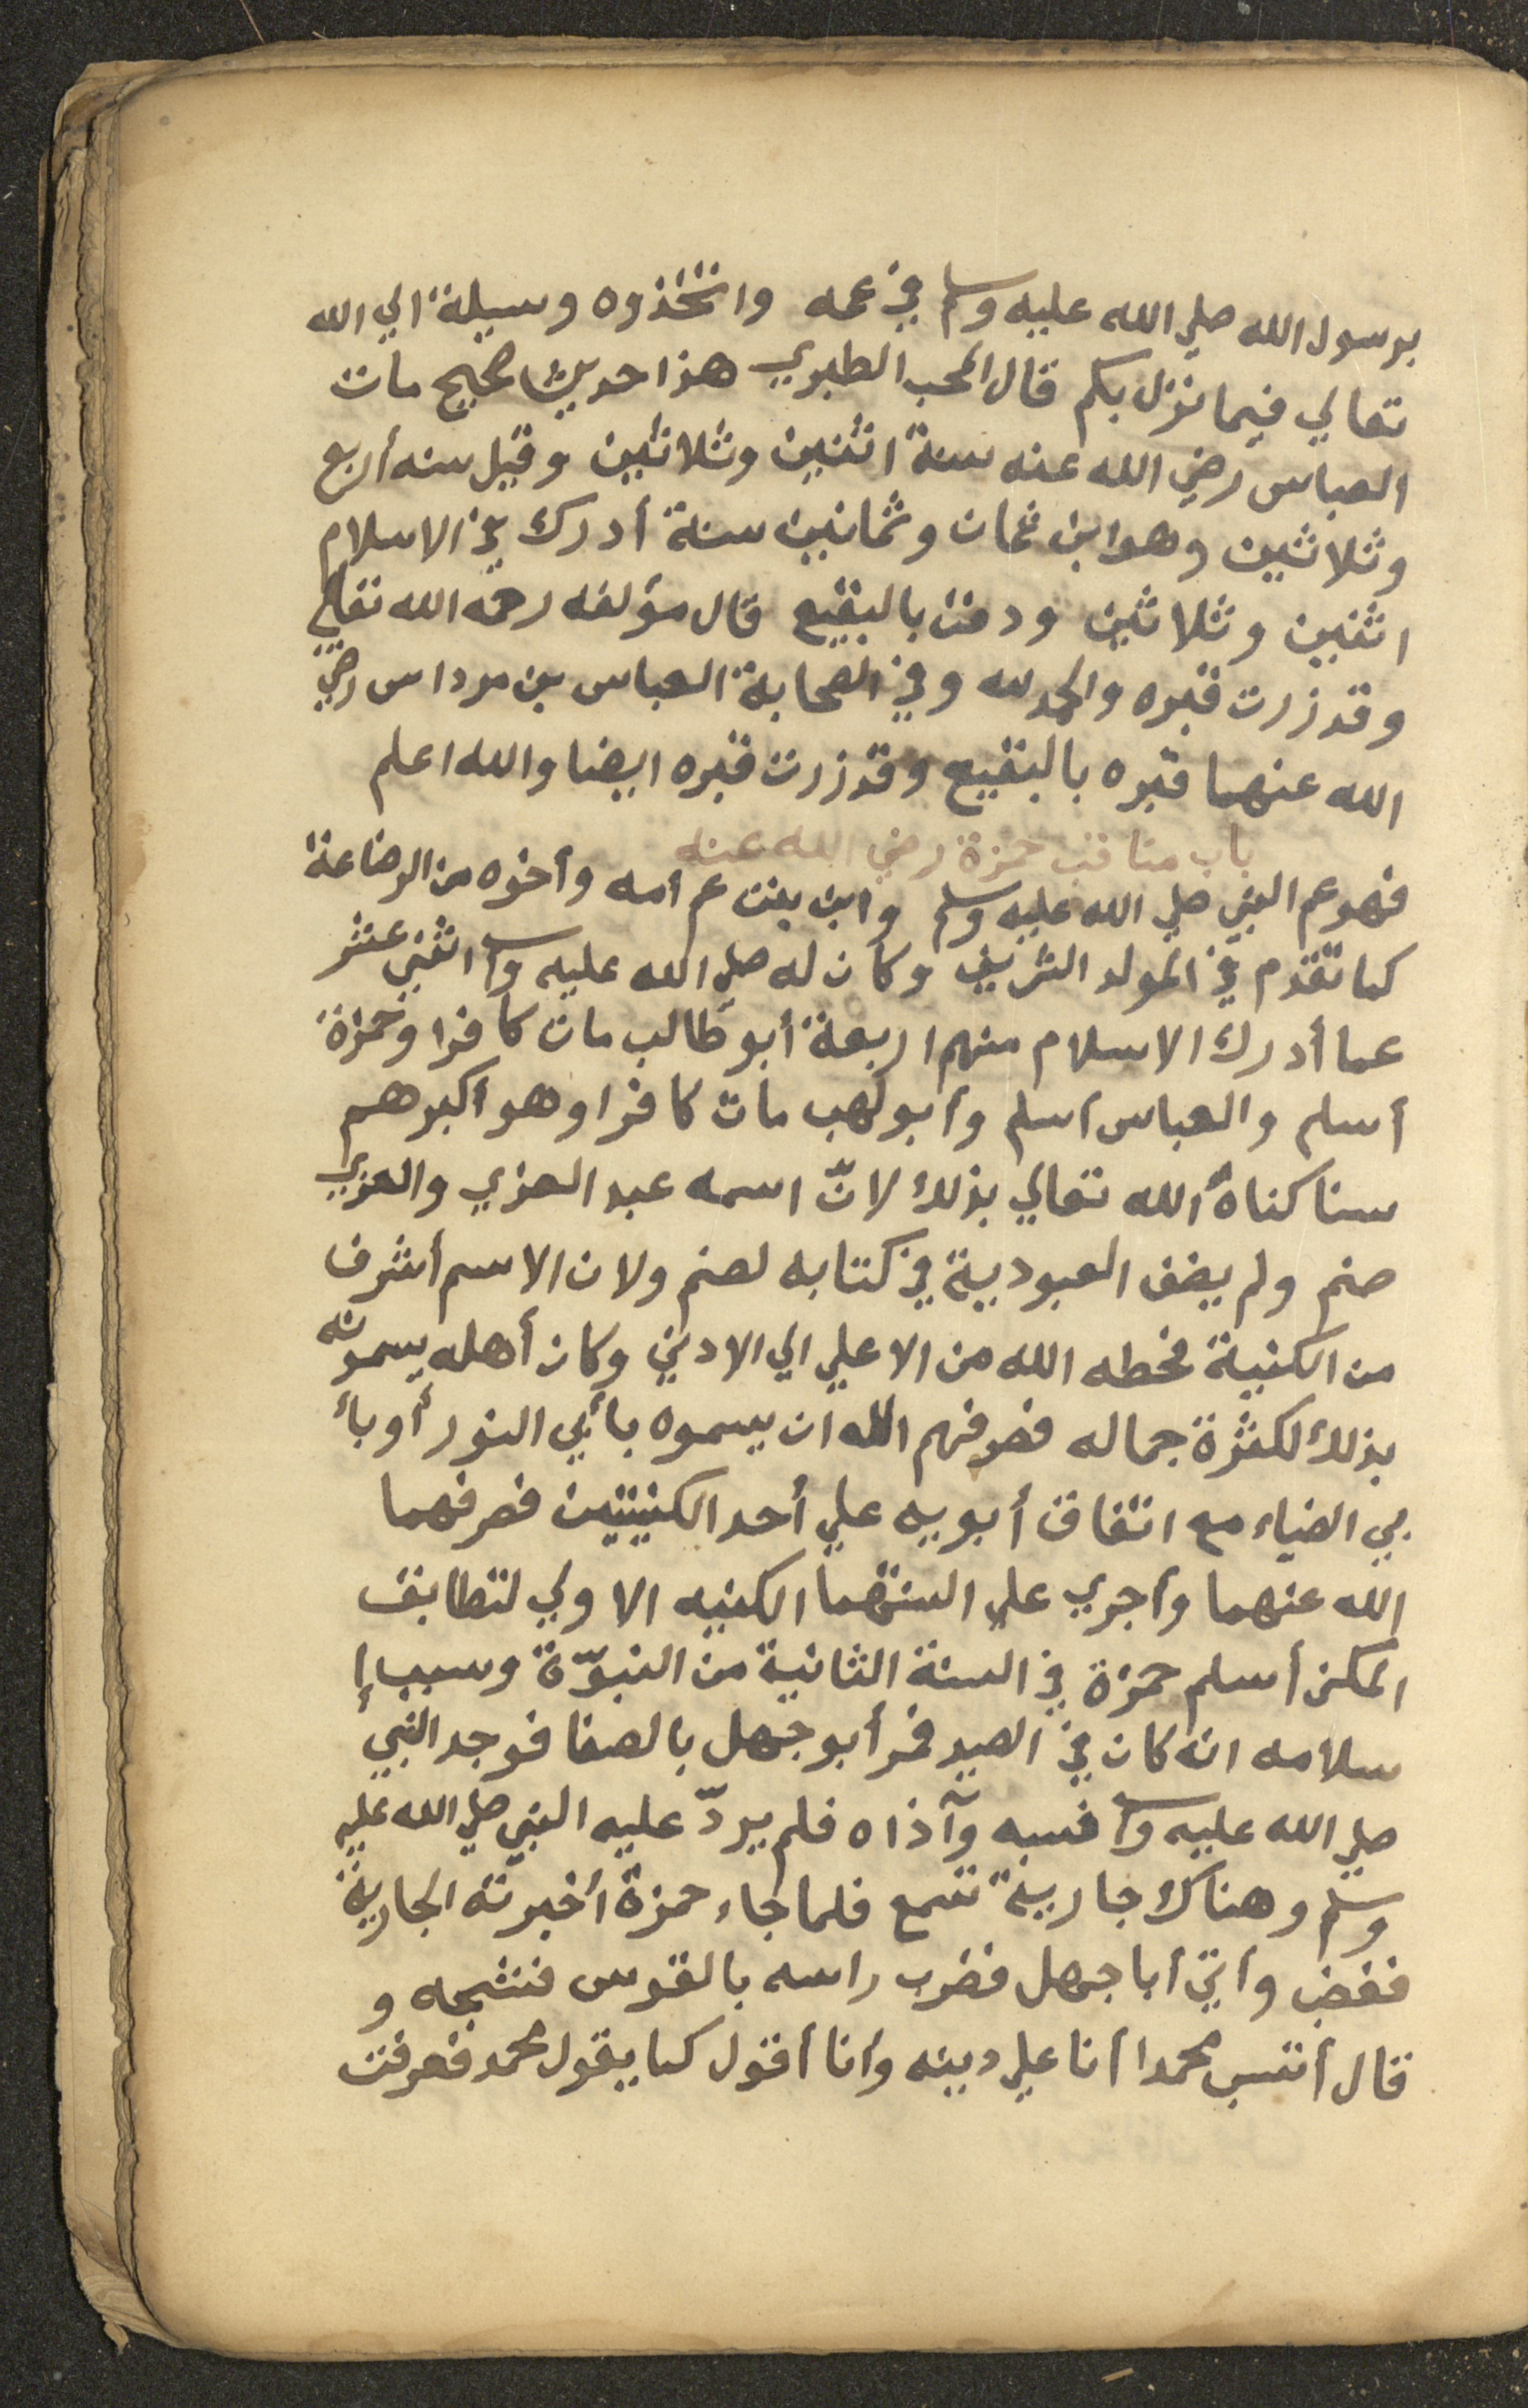 برسول الله صلي الله عليه وسلم في عمه واتخذوه وسيلة الي الله
تعالي فيما نزل بكم قال المحب الطبري هذا حديث صحيح مات
العباس رضي الله عنه سنة اثنين وثلاثين وقيل سنه أربع
وثلاثين وهو ابن ثمان وثمانين سنة أدرك في الاسلام
اثنين وثلاثين ودفن بالبقيع قال مؤلفه رحمه الله تعالي
وقد زرت قبره والحمد لله وفي الصحابة العباس بن مرداس رضي
الله عنهما قبره بالبقيع وقد زرت قبره ايضا والله اعلم
باب مناقب حمزة رضي الله عنه
فهو عم النبي صلي الله عليه وسلم وابن بنت عم أمه وأخوه من الرضاعة
كما تقدم في المولد الشريف وكان له صلي الله عليه وسلم اثني عشر
عما أدرك الاسلام منهم اربعة أبو طالب مات كافرا وحمزة
أسلم والعباس أسلم وأبو لهب مات كافرا وهو أكبرهم
سنا كناه الله تعالي بذلك لانّ اسمه عبد العزي والعزي
صنم ولم يضف العبودية في كتابه لصنم ولان الاسم أشرف
من الكنية فحطه الله من الاعلي الي الادني وكان أهله يسمونه
بذلك لكثرة جماله فصرفهم الله ان يسموه بأبي النور أو بأ
بي الضياء مع اتفاق أبويه علي أحد الكنيتين فصرفهما
الله عنهما وأجري علي السنتهما الكنيه الاولي لتطابق
المكن أسلم حمزة في السنة الثانية من النبوّة وسبب إ
سلامه انه كان في الصيد فمر أبو جهل بالصفا فوجد النبي
صلي الله عليه وسلم فسبه وآذاه فلم يردّ عليه النبي صلي الله عليه
وسلم وهناك جارية تسمع فلما جاء حمزة أخبرته الجارية
فغضب وأتي أبا جهل فضرب راسه بالقوس فشجه و
قال أتسب محمدا أنا علي دينه وأنا أقول كما يقول محمد فعرفت